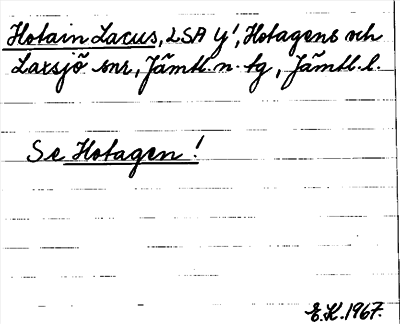 Hotain Lacus, LSA Y', Hotagens och
Laxsjö snr, Jämtl. n. tg, Jämtl. l.
Se Hotagen!
E.K. 1967.